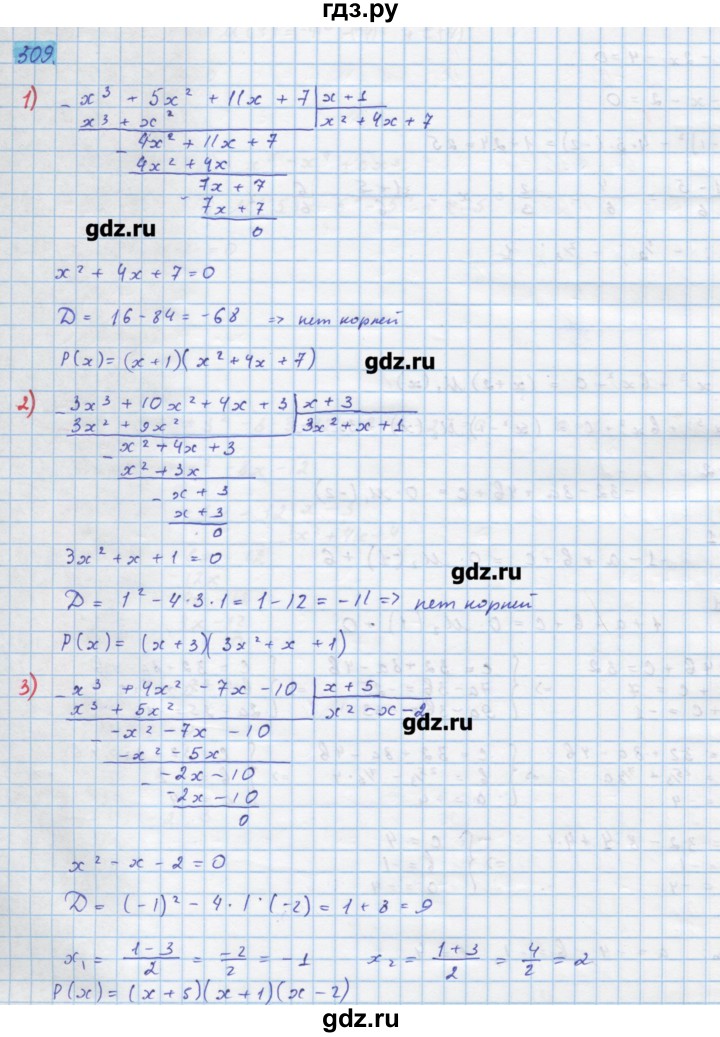 гдз.ру
309.
1) - x³ + 5x² + 11x + 7 | x + 1
x³ + x² | x² + 4x + 7
- 4x² + 11x + 7
4x² + 4x
- 7x + 7
7x + 7
0
gdz.ru
x² + 4x + 7 = 0
D = 16 - 84 = -68 => нет корней
P(x) = (x + 1)(x² + 4x + 7)
gdz.ru
2) - 3x³ + 10x² + 4x + 3 | x + 3
3x² + 9x² | 3x² + x + 1
- x² + 4x + 3
x² + 3x
- x + 3
x + 3
0
3x² + x + 1 = 0
gdz.ru
D = 1² - 4 · 3 · 1 = 1 - 12 = -11 => нет корней
P(x) = (x + 3)(3x² + x + 1)
3) - x³ + 4x² - 7x - 10 | x + 5
x³ + 5x² | x² - x - 2
gdz.ru
- -x² - 7x - 10
-x² - 5x
- -2x - 10
-2x - 10
0
x² - x - 2 = 0
D = (-1)² - 4 · 1 · (-2) = 1 + 8 = 9
x₁ = (1 - 3)/2 = -2/2 = -1 x₂ = (1 + 3)/2 = 4/2 = 2
P(x) = (x + 5)(x + 1)(x - 2)
gdz.ru